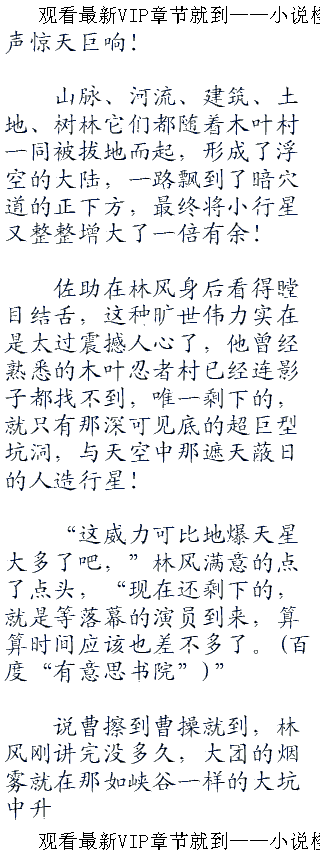 观看最新VIP章节就到——小说检
声惊天巨响！
山脉、河流、建筑、土
地、树林它们都随着木叶村
一同被拔地而起，形成了浮
空的大陆，一路飘到了暗穴
道的正下方，最终将小行星
又整整增大了一倍有余！
佐助在林风身后看得瞠
目结舌，这种旷世伟力实在
是太过震撼人心了，他曾经
熟悉的木叶忍者村已经连影
子都找不到，唯一剩下的，
就只有那深可见底的超巨型
坑洞，与天空中那遮天蔽日
的人造行星！
“这威力可比地爆天星
大多了吧，”林风满意的点
了点头，“现在还剩下的，
就是等落幕的演员到来，算
算时间应该也差不多了。(百
度“有意思书院”)”
说曹擦到曹操就到，林
风刚讲完没多久，大团的烟
雾就在那如峡谷一样的大坑
中升
观看最新VIP章节就到——小说检